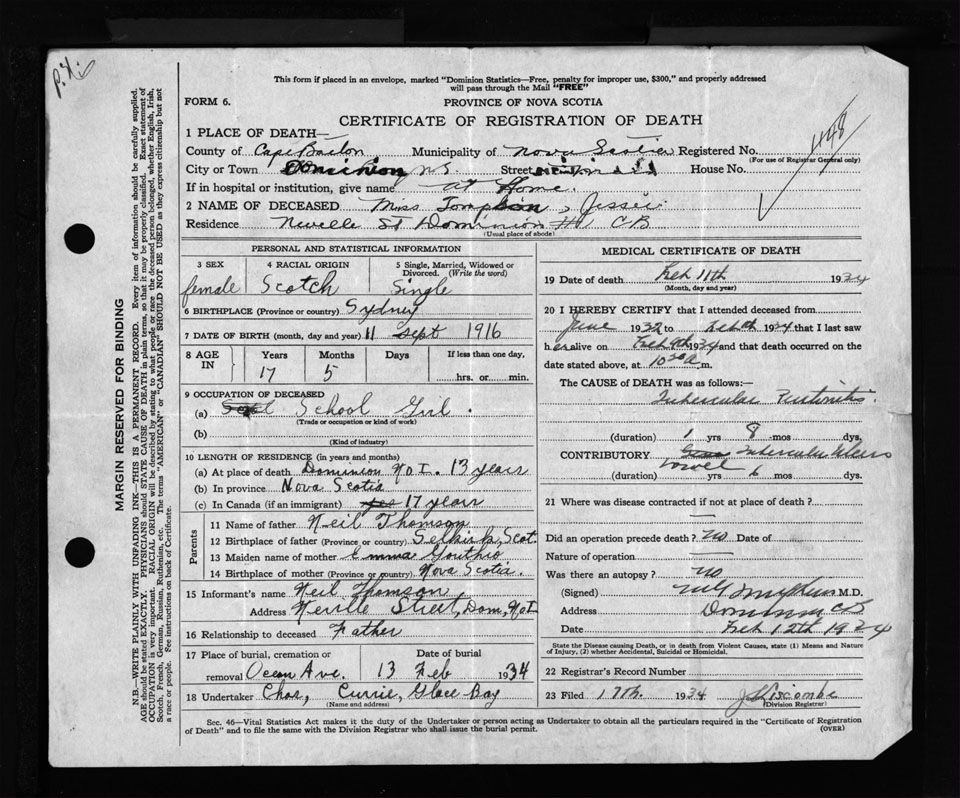 P.X.
This form if placed in an envelope, marked "Dominion Statistics—Free, penalty for improper use, $300," and properly addressed
will pass through the Mail "FREE"
FORM 6.
PROVINCE OF NOVA SCOTIA
CERTIFICATE OF REGISTRATION OF DEATH
448
1 PLACE OF DEATH—
County of Cape Breton Municipality of Nova Scotia Registered No.
(For use of Registrar General only)
City or Town Dominion N.S. Street House No.
If in hospital or institution, give name at Home.
2 NAME OF DECEASED Miss Tompson, Jessie
Residence Neville St Dominion C B
(Usual place of abode)
MARGIN RESERVED FOR BINDING
N.B.—WRITE PLAINLY WITH UNFADING INK—THIS IS A PERMANENT RECORD. Every item of information should be carefully supplied.
AGE should be stated EXACTLY. PHYSICIANS should STATE CAUSE OF DEATH in plain terms, so that it may be properly classified. Exact statement of
OCCUPATION is very important. RACIAL ORIGIN will be described by stating to what people or race the deceased person belonged, whether English, Irish,
Scotch, French, German, Russian, Ruthenian, etc. The terms "AMERICAN" or "CANADIAN" SHOULD NOT BE USED as they express citizenship but not
a race or people. See instructions on back of Certificate.
PERSONAL AND STATISTICAL INFORMATION
3 SEX 4 RACIAL ORIGIN 5 Single, Married, Widowed or
Divorced. (Write the word)
female Scotch Single
6 BIRTHPLACE (Province or country) Sydney
7 DATE OF BIRTH (month, day and year) 11 Sept 1916
8 AGE IN Years Months Days If less than one day,
17 5 hrs. or min.
9 OCCUPATION OF DECEASED
(a) School Girl.
(Trade or occupation or kind of work)
(b)
(Kind of industry)
10 LENGTH OF RESIDENCE (in years and months)
(a) At place of death Dominion No I. 13 years
(b) In province Nova Scotia
(c) In Canada (if an immigrant) 17 years
Parents
11 Name of father Neil Thomson
12 Birthplace of father (Province or country) Selkirk, Scot.
13 Maiden name of mother Emma
14 Birthplace of mother (Province or country) Nova Scotia.
15 Informant's name Neil Thomson
Address Neville Street, Dom, No I
16 Relationship to deceased Father
17 Place of burial, cremation or Date of burial
removal Ocean Ave. 13 Feb 1934
18 Undertaker Chas, Currie, Glace Bay
(Name and address)
MEDICAL CERTIFICATE OF DEATH
19 Date of death Feb 11th 1934
(Month, day and year)
20 I HEREBY CERTIFY that I attended deceased from
June 1932 to Feb 1934 that I last saw
her alive on Feb 9th 1934 and that death occurred on the
date stated above, at 10 30 a m.
The CAUSE OF DEATH was as follows:—
Tubercular
(duration) 1 yrs 8 mos. dys.
CONTRIBUTORY Tubercular Ulcers
bowel
(duration) yrs 6 mos. dys.
21 Where was disease contracted if not at place of death?
—
Did an operation precede death? no Date of
Nature of operation —
Was there an autopsy? no
(Signed) M.D.
Address Dominion CB
Date Feb 12th 1934
State the Disease causing Death, or in death from Violent Causes, state (1) Means and Nature
of Injury, (2) whether Accidental, Suicidal or Homicidal.
22 Registrar's Record Number
23 Filed 17th 1934
(Division Registrar)
Sec. 46—Vital Statistics Act makes it the duty of the Undertaker or person acting as Undertaker to obtain all the particulars required in the "Certificate of Registration
of Death" and to file the same with the Division Registrar who shall issue the burial permit.
(OVER)